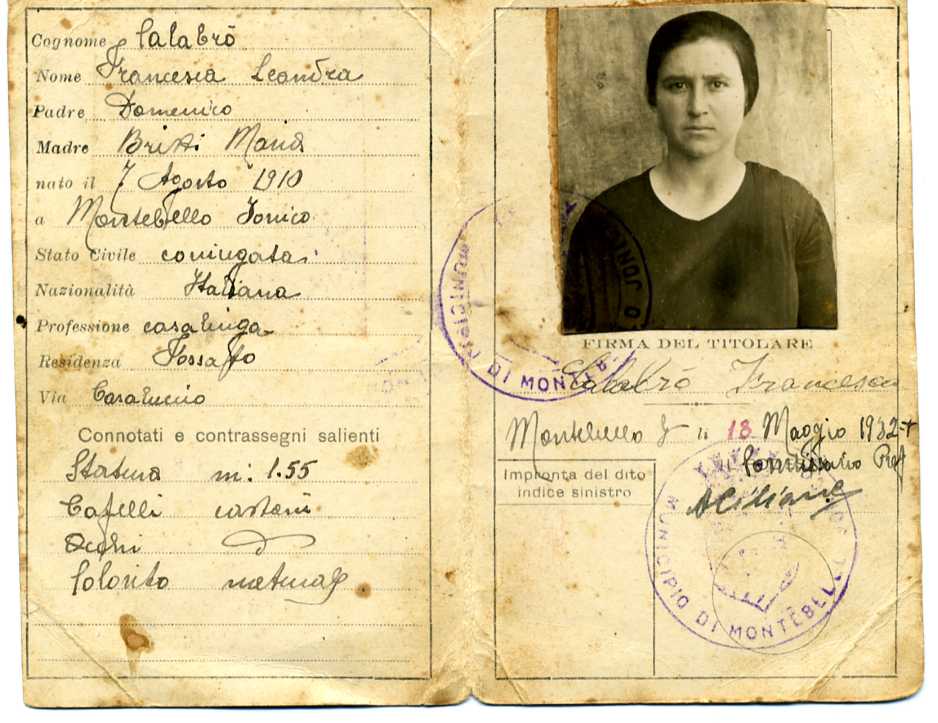 Cognome Calabrò
Nome Francesca Leandra
Padre Domenico
Madre Britti Maria
nato il 7 Agosto 1910
a Montebello Jonico
Stato Civile coniugata
Nazionalità Italiana
Professione casalinga
Residenza Fossato
Via
Connotati e contrassegni salienti
Statura m: 1.55
Capelli castani
Occhi
Colorito naturale
FIRMA DEL TITOLARE
Calabrò Francesca
Montebello J li 18 Maggio 1932
Impronta del dito
indice sinistro
MUNICIPIO DI MONTEB
O JONIC
MUNICIPIO DI MONTEBELLO